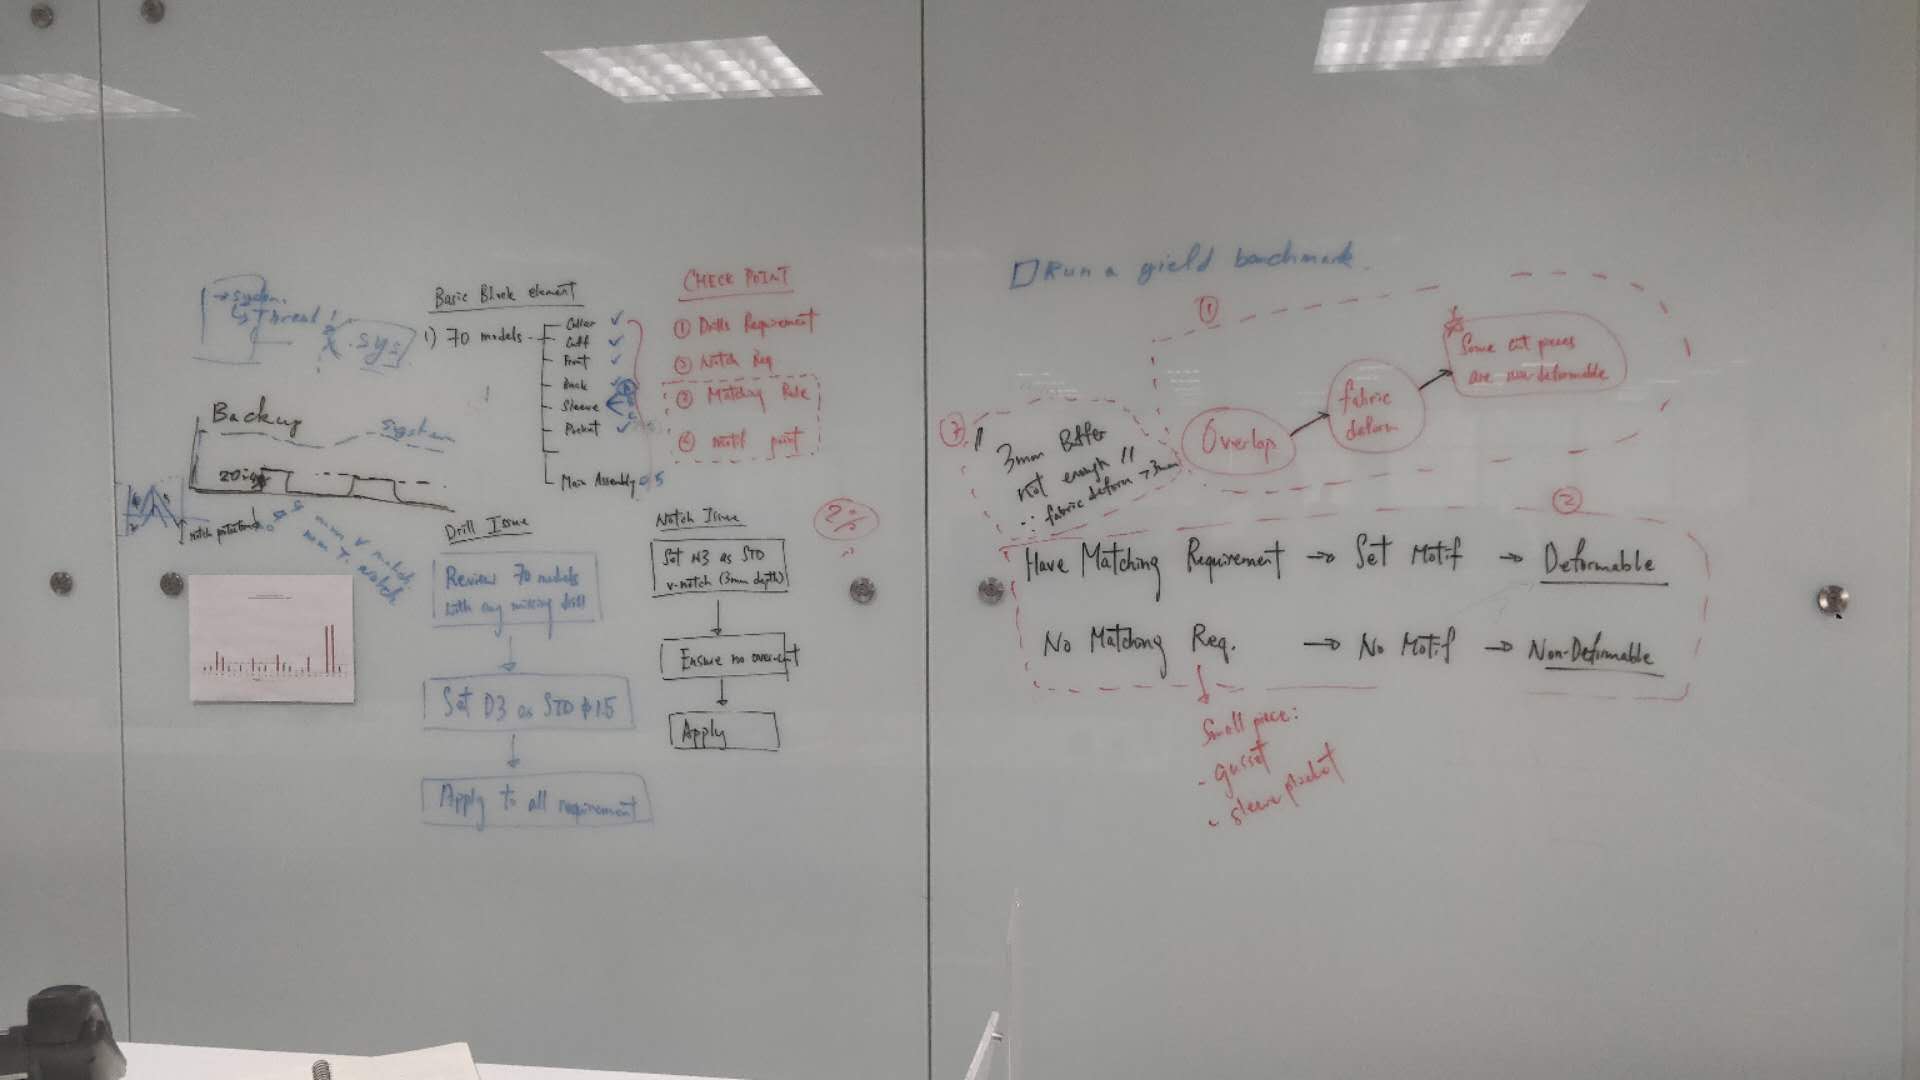 → system
↳ Thread!
.sys
Backup
system
Basic Block element
1) 70 models
Collar ✓
Cuff ✓
Front ✓
Back
Sleeve
Pocket ✓
Main Assembly
CHECK POINT
① Drills Requirement
② Notch Req
③ Matching Rule
④ Motif point
Drill Issue
Review 70 models
with any missing drill
Set D3 as STD
Apply to all requirement
Notch Issue
Set N3 as STD
v-notch (3mm depth)
Ensure no over-cut
Apply
□ Run a yield benchmark.
①
Overlap
fabric
deform
Some cut pieces
are non-deformable
3mm Buffer
not enough !!
∵ fabric deform >3mm
②
Have Matching Requirement → Set Motif → Deformable
No Matching Req. → No Motif → Non-Deformable
Small piece:
- gusset
- sleeve placket